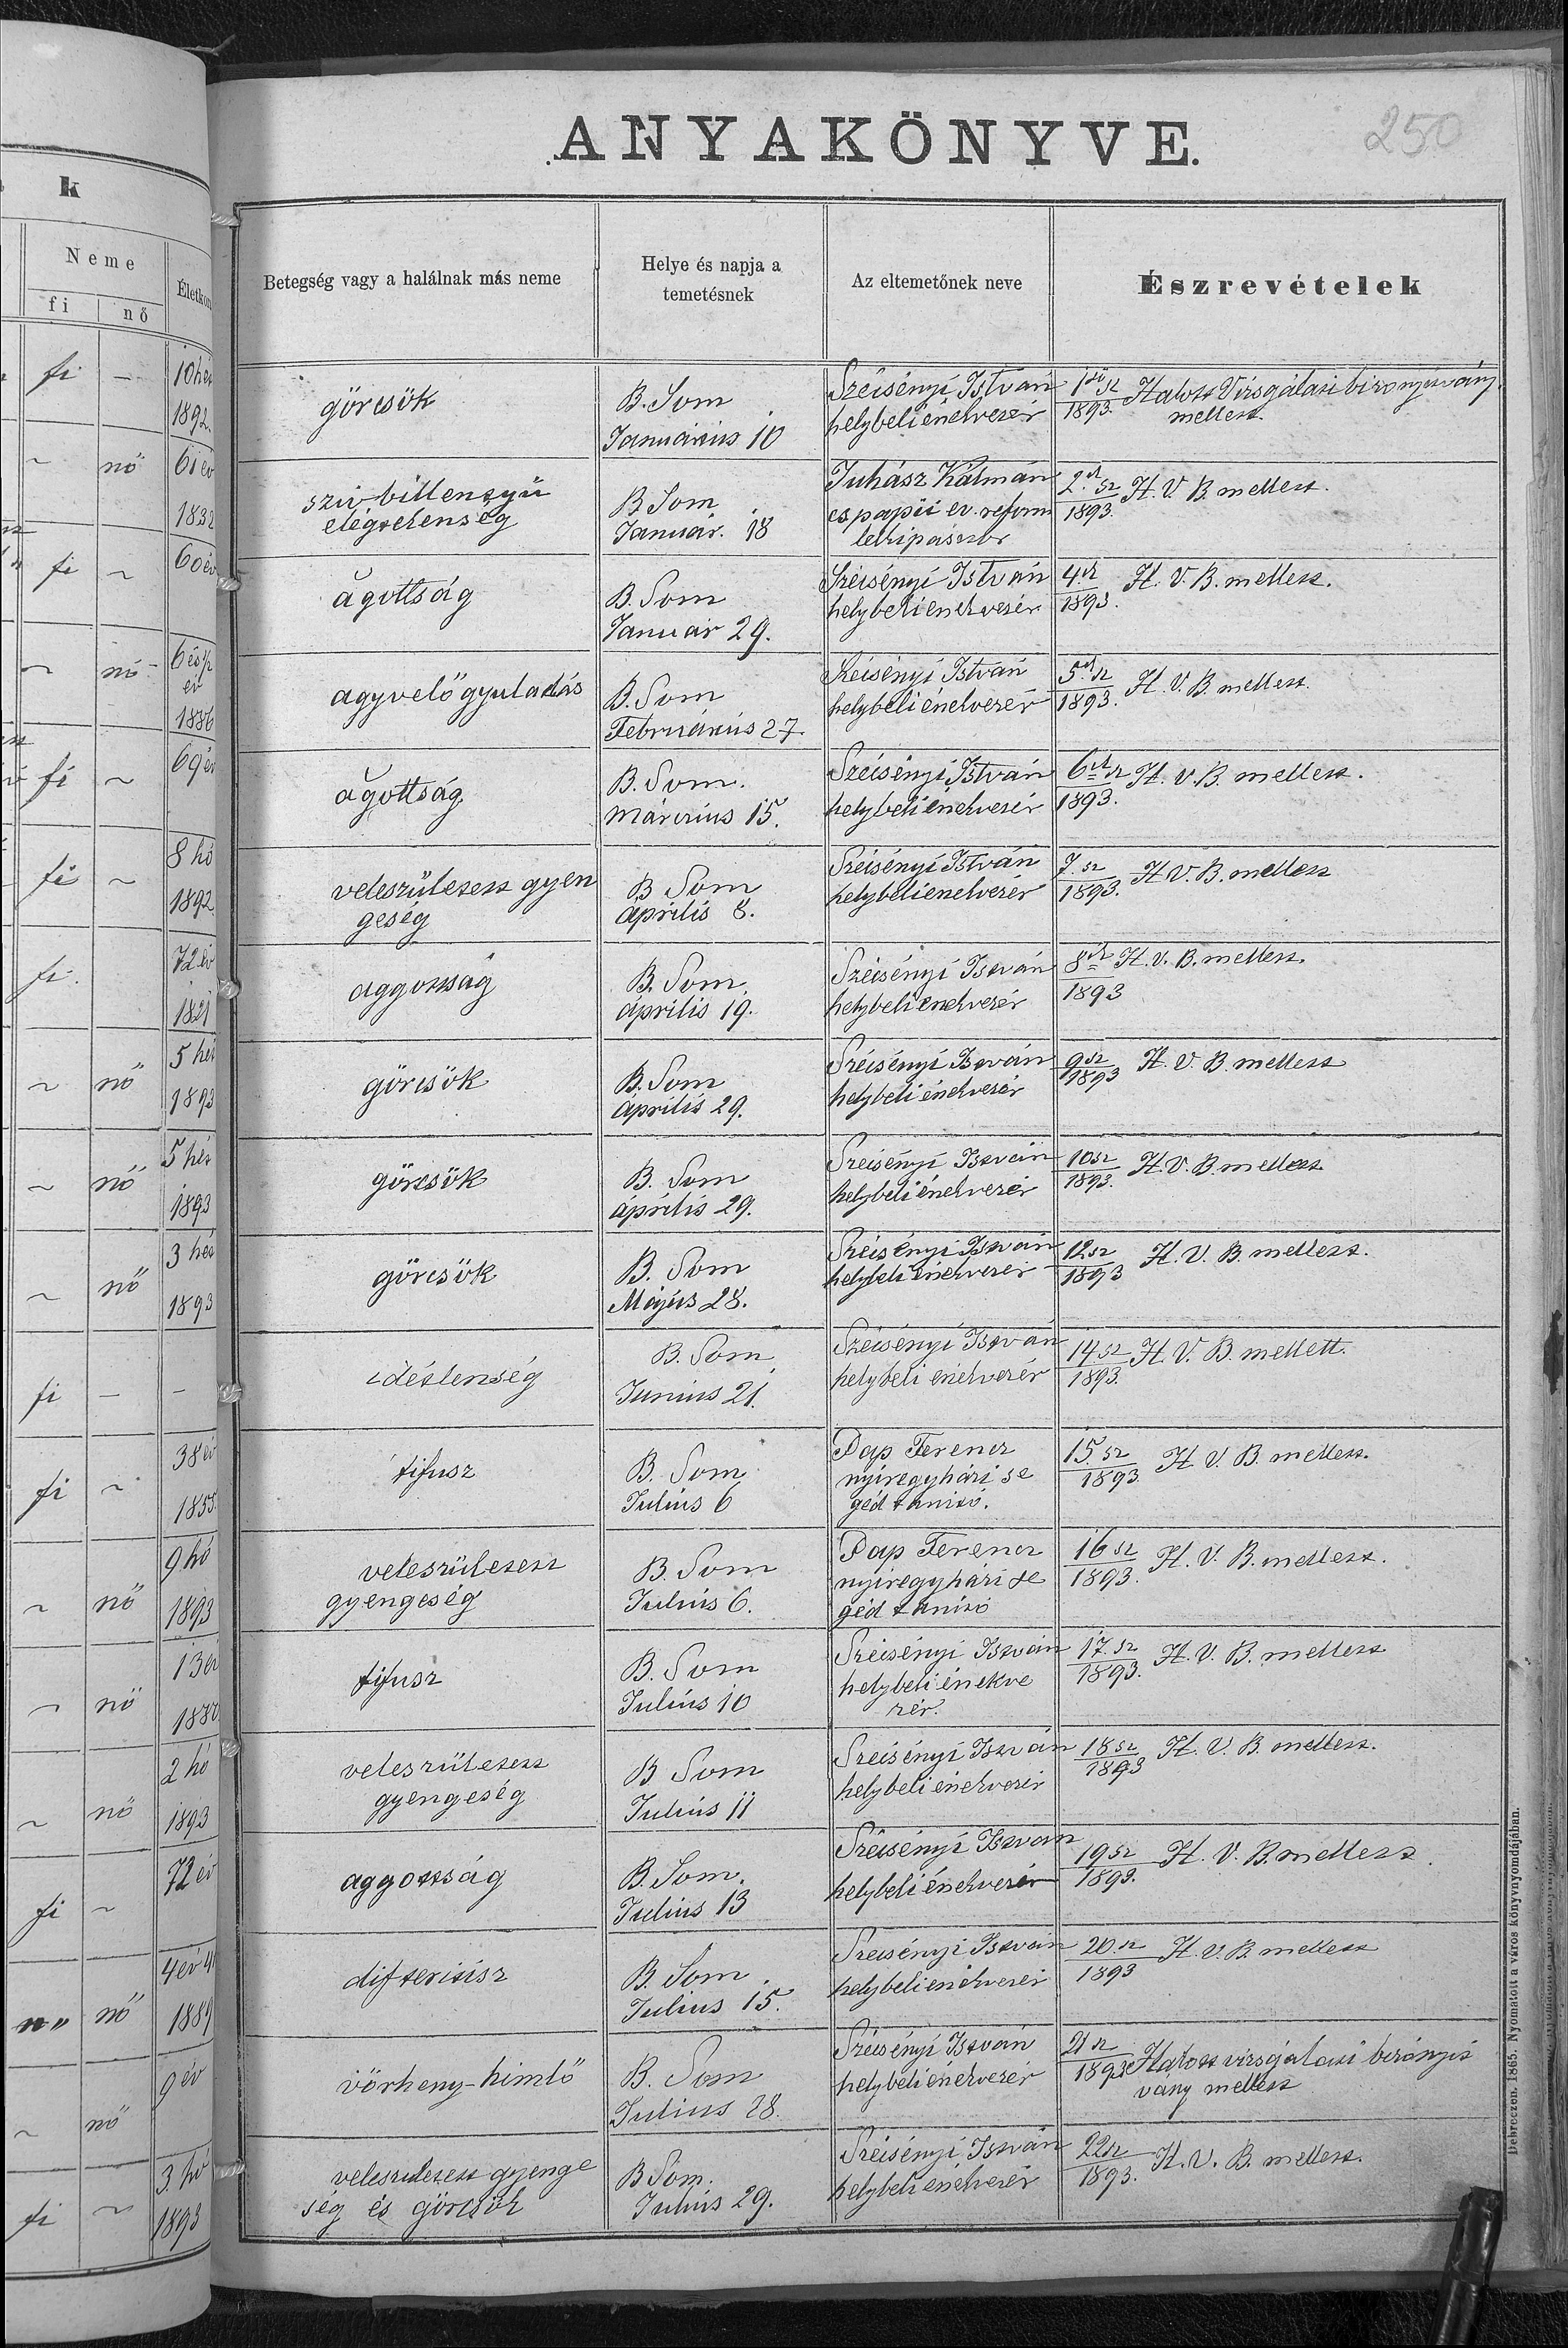 ANYAKÖNYVE.
250
k
Neme
Életkor
fi
nő
Betegség vagy a halálnak más neme
Helye és napja a
temetésnek
Az eltemetőnek neve
Észrevételek
fi
—
10 hét
1892
görcsök
B. Som
Januárius 10
Szécsényi István
helybeli énekvezér
1ső sz
1893.
Halott Vizsgálati bizonyitvány
mellett.
~
nő
61 év
1832
szivbillengyü
elégtelenség
B Som
Január. 18
Juhász Kálmán
cs papii ev. reform
lelkipásztor
2.ik sz
1893.
H. V. B. mellett.
fi
~
60 év
ăgottság
B. Som
Január 29.
Szécsényi István
helybeli énekvezér
4.ik
1893.
H. V. B. mellett.
~
nő
6 és ½
év
1886
agyvelőgyuladás
B. Som
Februárius 27.
Szécsényi István
helybeli énekvezér
5.ik sz
1893.
H. V. B. mellett.
fi
~
69 év
ăgottság
B. Som.
március 15.
Szécsényi István
helybeli énekvezér
6ik sz
1893.
H. V. B. mellett.
fi
~
8 hó
1892
veleszületett gyen
geség
B Som
április 8.
Szécsényi István
helybeli énekvezér
7. sz
1893.
H. V. B. mellett
fi.
72 év
1821
aggottság
B. Som.
április 19.
Szécsényi István
helybeli énekvezér
8ik
1893
H. V. B. mellett.
~
nő
5 hét
1893
görcsök
B. Som
április 29.
Szécsényi István
helybeli énekvezér
9 sz
1893
H. V. B. mellett
~
nő
5 hét
1893
görcsök
B. Som
április 29.
Szécsényi István
helybeli énekvezér
10 sz
1893.
H. V. B. mellett
~
nő
3 hét
1893
görcsök
B. Som
Május 28.
Szécsényi István
helybeli énekvezér
12 sz
1893
H. V. B. mellett.
fi
—
—
idétlenség
B. Som
Junius 21.
Szécsényi István
helybeli énekvezér
14 sz
1893.
H. V. B. mellett.
fi
~
38 év
1855
tifusz
B. Som
Július 6
Pap Ferencz
nyiregyházi se
géd tanitó.
15. sz
1893.
H. V. B. mellett.
~
nő
9 hó
1893
veleszületett
gyengeség
B. Som
Július 6.
Pap Ferencz
nyiregyházi se
géd tanitó
16 sz
1893.
H. V. B. mellett.
~
nő
13 év
1880
tifusz
B. Som
Július 10
Szécsényi István
helybeli énekve
zér.
17. sz
1893.
H. V. B. mellett
~
nő
2 hó
1893
veleszületett
gyengeség
B Som
Július 11
Szécsényi István
helybeli énekvezér
18 sz
1893
H. V. B. mellett.
fi
~
72 év
aggottság
B. Som.
Július 13
Szécsényi István
helybeli énekvezér
19 sz
1893.
H. V. B. mellett.
nő
4 év 4
1889
difteritisz
B. Som
Július 15.
Szécsényi István
helybeli énekvezér
20. sz
1893
H. V. B. mellett
~
nő
9 év
vörheny-himlő
B. Som
Július 28.
Szécsényi István
helybeli énekvezér
21 sz
1893
Halott vizsgálati bizonyit
vány mellett
fi
~
3. hó
1893
veleszületett gyenge
ség és görcsök
B Som.
Július 29.
Szécsényi István
helybeli énekvezér
22 sz
1893.
H. V. B. mellett.
Debreczen. 1865. Nyomatott a város könyvnyomdájában.